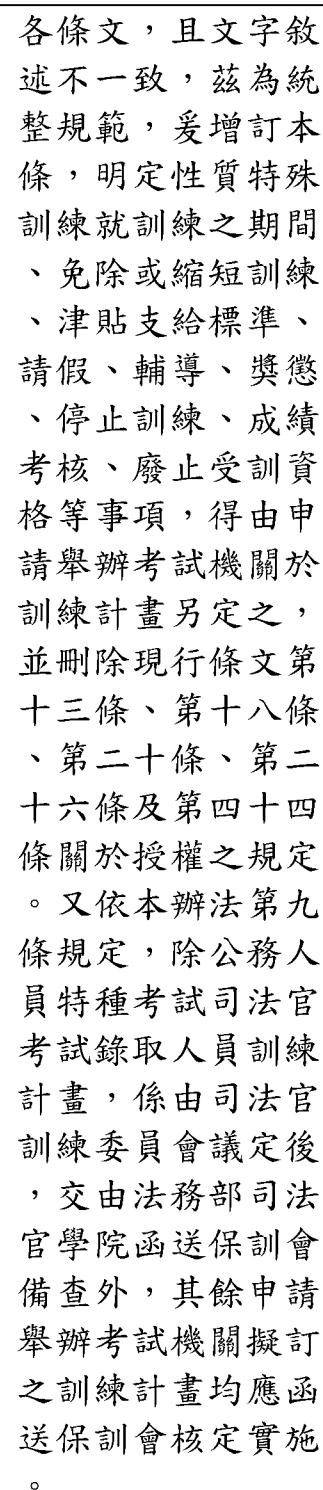 各條文，且文字敘
述不一致，茲為統
整規範，爰增訂本
條，明定性質特殊
訓練就訓練之期間
、免除或縮短訓練
、津貼支給標準、
請假、輔導、獎懲
、停止訓練、成績
考核、廢止受訓資
格等事項，得由申
請舉辦考試機關於
訓練計畫另定之，
並刪除現行條文第
十三條、第十八條
、第二十條、第二
十六條及第四十四
條關於授權之規定
。又依本辦法第九
條規定，除公務人
員特種考試司法官
考試錄取人員訓練
計畫，係由司法官
訓練委員會議定後
，交由法務部司法
官學院函送保訓會
備查外，其餘申請
舉辦考試機關擬訂
之訓練計畫均應函
送保訓會核定實施
。